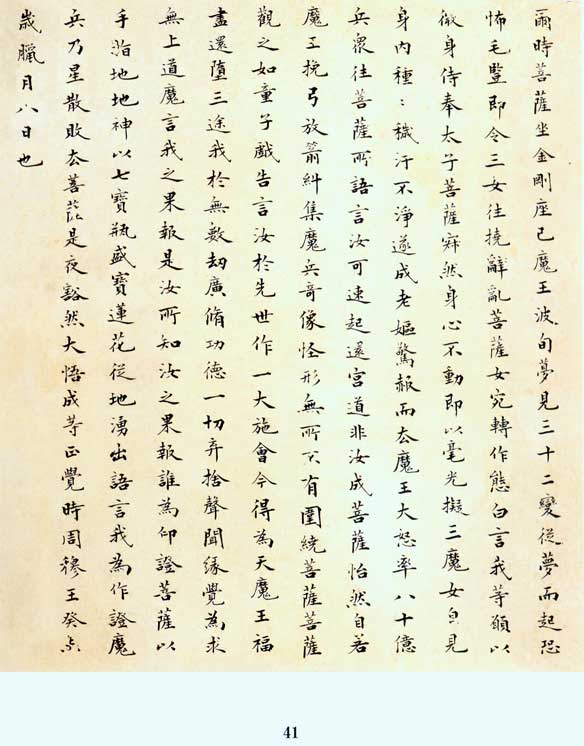 爾時菩薩坐金剛座已魔王波旬夢見三十二變從夢而起恐
怖毛豎即令三女往撓辭亂菩薩女宛轉作態白言我等願以
微身侍奉太子菩薩寂然身心不動即以毫光擬三魔女自見
身內種〻穢汙不淨遂成老嫗驚赧而去魔王大怒率八十億
兵眾往菩薩所語言汝可速起還宮道非汝成菩薩怡然自若
魔王挽弓放箭糾集魔兵奇像怪形無所不有圍繞菩薩菩薩
觀之如童子戲告言汝於先世作一大施會今得為天魔王福
盡還墮三途我於無數劫廣脩功德一切弃捨聲聞緣覺為求
無上道魔言我之果報是汝所知汝之果報誰為仰證菩薩以
手指地地神以七寶瓶盛寶蓮花從地湧出語言我為作證魔
兵乃星散敗去菩薩是夜豁然大悟成等正覺時周穆王癸未
歲臘月八日也
41